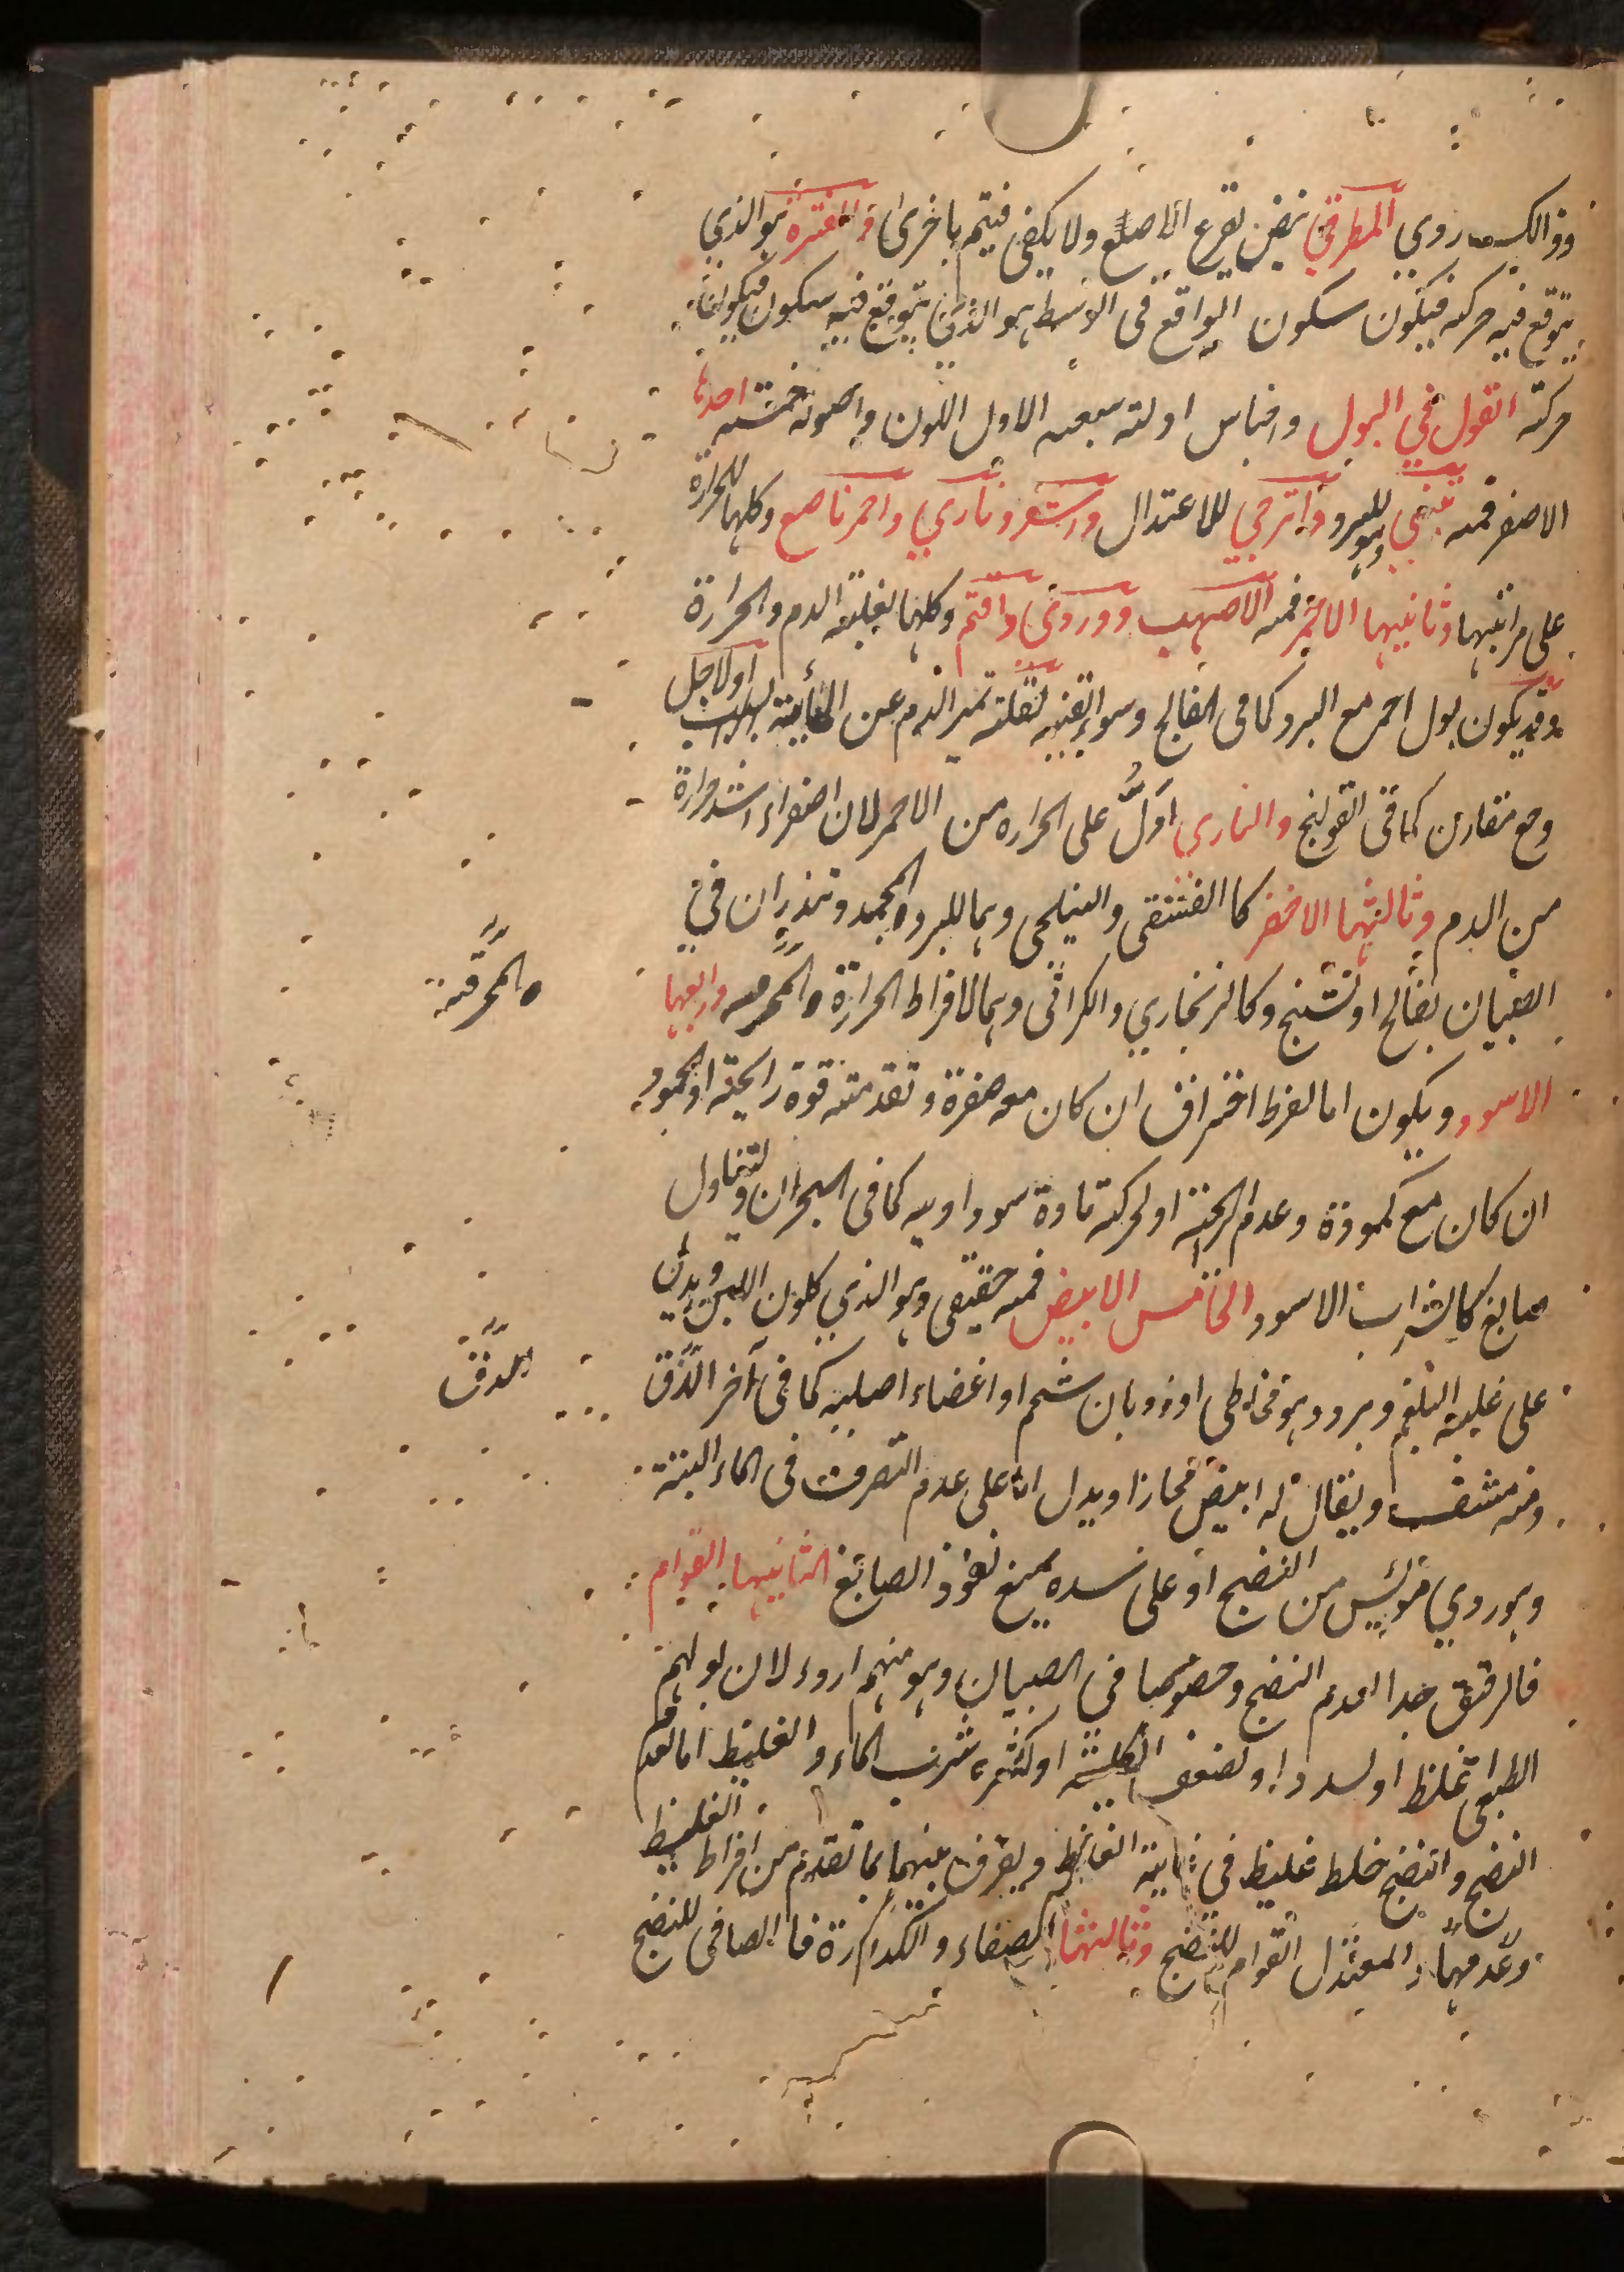 وذالك ردي المطرقي نبض يقرع الاصبع ولا يكفى فيتم باخرى وذالفترة هو الذي
يتوقع فيه حركة فيكون سكون الواقع فى الوسط هو الذى يتوقع فيه سكون فيكون
حركة القول في البول واجناس ادلته سبعه الاول اللون واصوله خمسة احدها
الاصفر فمنه تبني وهو للبرد واترجي للاعتدال واشقر وناري واحمر ناصع وكلها للحرارة
على مراتبها وثانيها الاحمر فمنه الاصهب ووردى واقتم وكلها لغلبة الدم والحرارة
وقد يكون بول احمر مع البرد كما فى الفالج وسوء القنيه لقلة تميز الدم عن المائية او لاجل
وجع مقارن كما فى القولنج والنارى ادل على الحراره من الاحمر لان الصفراء اشد حرارة
من الدم وثالثها الاخضر كا الفستقى والنيلجى وهما للبرد المجمد وتنذران في
الصبيان بفالج او تشنج وكالزنجاري والكراثى وهما لافراط الحرارة المحرقه ورابعها
المحرقة
الاسود ويكون اما لفرط احتراق ان كان معه صفرة وتقدمته قوة رايحة او لجمود
ان كان مع كمودة وعدم رايحة او لحركة مادة سوداويه كما فى البحران ولتناول
صابغ كالشراب الاسود الخامس الابيض فمنه حقيقى وهو الذي كلون اللبن ويدل
على غلبة البلغم وبرد وهو مخاطى او ذوبان شحم او اعضاء اصلية كما فى آخر الدق
الدق
ومنه مشف ويقال له ابيض مجازا ويدل اما على عدم التصرف فى الماء البتة
وهو ردي مويس من النضج او على سده يمنع نفوذ الصابغ الثانيها القوام
فالرقيق جدا لعدم النضج وخصوصا فى الصبيان وهو منهم اردء لان بولهم
الطبيعى اغلظ او لسدد او لضعف الكلية او لكثرة شرب الماء والغليظ اما لعدم
النضج او لنضج خلط غليظ في غاية الغلظ ويفرق بينهما بما تقدم من افراط الغليظ
وعدمها والمعتدل القوام للنضج وثالثها الصفاء والكدرة فا الصافى للنضج